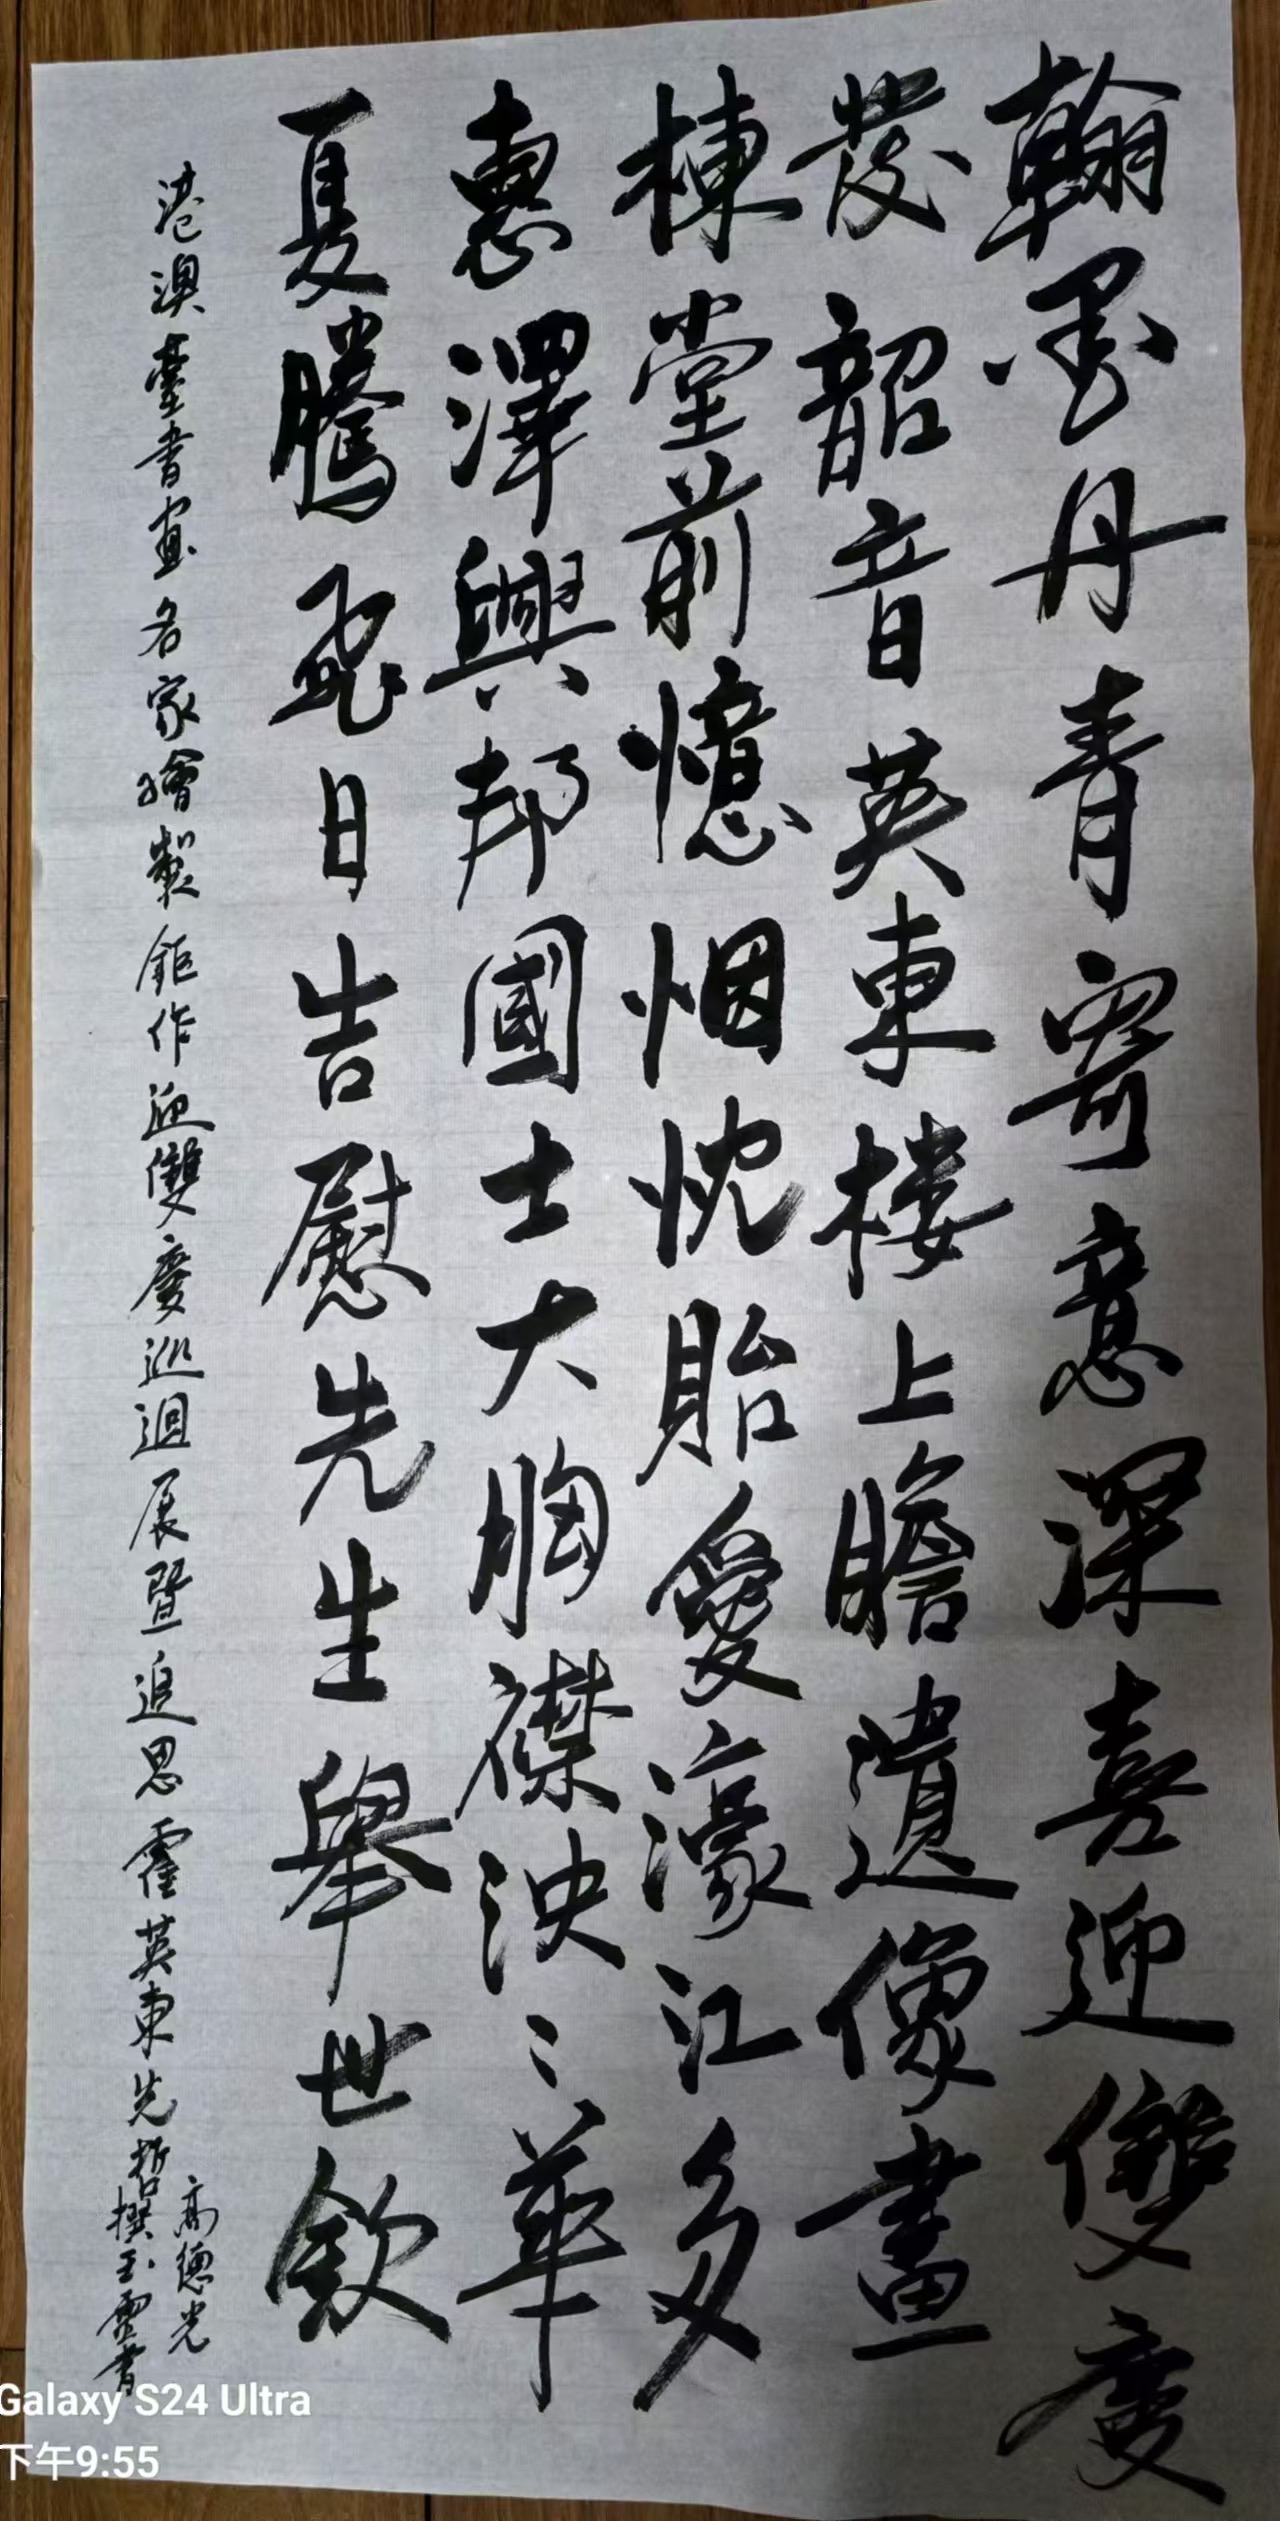 翰墨丹青寄意深喜迎雙慶
發韶音英東樓上瞻遺像畫
棟堂前憶烟忱貽愛濠江多
惠澤興邦國士大胸襟泱泱華
夏騰飛日告慰先生舉世欽
港澳臺書畫名家繪製鉅作迎雙慶巡迴展暨追思霍英東先哲
高德光
撰玉靈書
Galaxy S24 Ultra
下午9:55